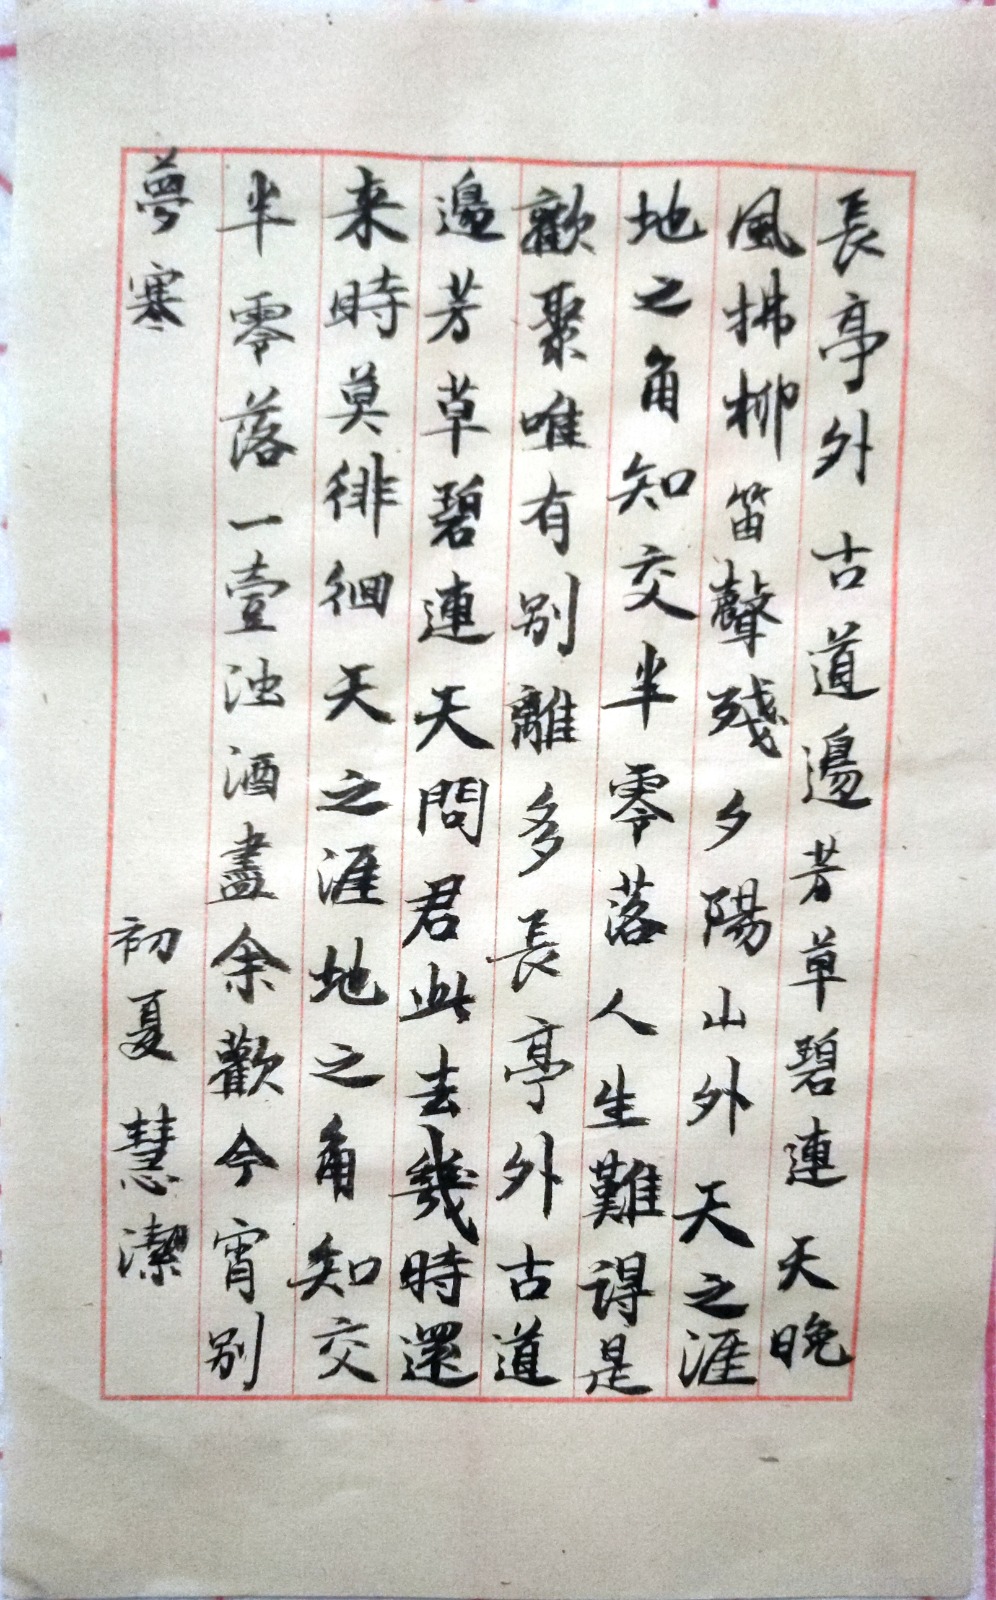 長亭外古道邊芳草碧連天晚
風拂柳笛聲殘夕陽山外天之涯
地之角知交半零落人生難得是
歡聚唯有别離多長亭外古道
邊芳草碧連天問君此去幾時還
来時莫徘徊天之涯地之角知交
半零落一壹浊酒盡余歡今宵别
夢寒
初夏慧潔